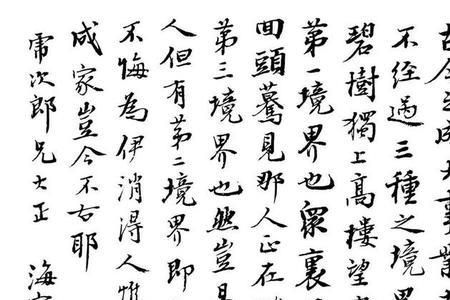 古今之成大事業
不经過三種之境界
碧樹獨上高樓望
第一境界也眾裏
回頭驀見那人正在
第三境界也然豈
人但有第二境界即
不悔為伊消得人
成家豈今不古耶
次郎兄大正
海